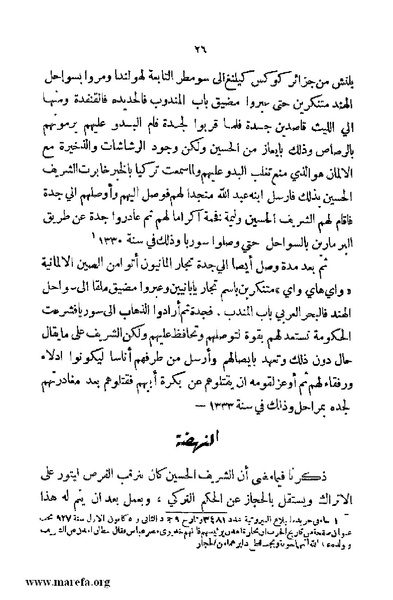 ٢٦
يلنش من جزائر كوكس كيلنغ الى سومطر التابعة لهولندا ومروا بسواحل
الهند متنكرين حتى عبروا مضيق باب المندوب فالحديده فالقنفدة ومنها
الى الليث قاصدين جدة فلما قربوا لجدة قام البدو عليهم يرمونهم
بالرصاص وذلك بايعاز من الحسين ولكن وجود الرشاشات والذخيرة مع
الالمان هو الذي منع تغلب البدو عليهم ولما سمعت تركيا بالخبر خابرت
الحسين بذلك فارسل ابنه عبد الله منجدا لهم فوصل اليهم وأوصلهم الى جدة
فاقام لهم الشريف الحسين وليمة فخمة اكراما لهم ثم غادروا جدة عن طريق
البر مارين بالسواحل حتى وصلوا سوريا وذلك في سنة ١٣٣٠ ١
ثم بعد مدة وصل أيضا الى جدة تجار المانيون أتوا من الصين الالمانية
« واى هاي واي » متنكرين باسم تجار يابانيين وعبروا مضيق ملقا الى سواحل
الهند فالبحر العربي باب المندب . فجدة ثم أرادوا الذهاب الى سوريا فشرعت
الحكومة تستعد لهم بقوة لتوصلهم وتحافظ عليهم ولكن الشريف على ما يقال
حال دون ذلك وتعهد بايصالهم وأرسل من طرفهم أناسا ليكونوا ادلاء
ورفقاء لهم ثم أوعز لقومه ان يقتلوهم عن بكرة أبيهم فقتلوهم بعد مغادرتهم
لجده بمراحل وذلك في سنة ١٣٣٣ —
النهضة
ذكرنا فيما مضى أن الشريف الحسين كان يترقب الفرص ليثور على
الاتراك ويستقل بالحجاز عن الحكم التركي ، وبعمل بعد ان يتم له هذا
١ البيروتية عدد ٣٤٨١ الثانى كانون الاول سنة ٩٢٧ تحت
عنوان صفحة من تاريخ الحرب
www.marefa.org